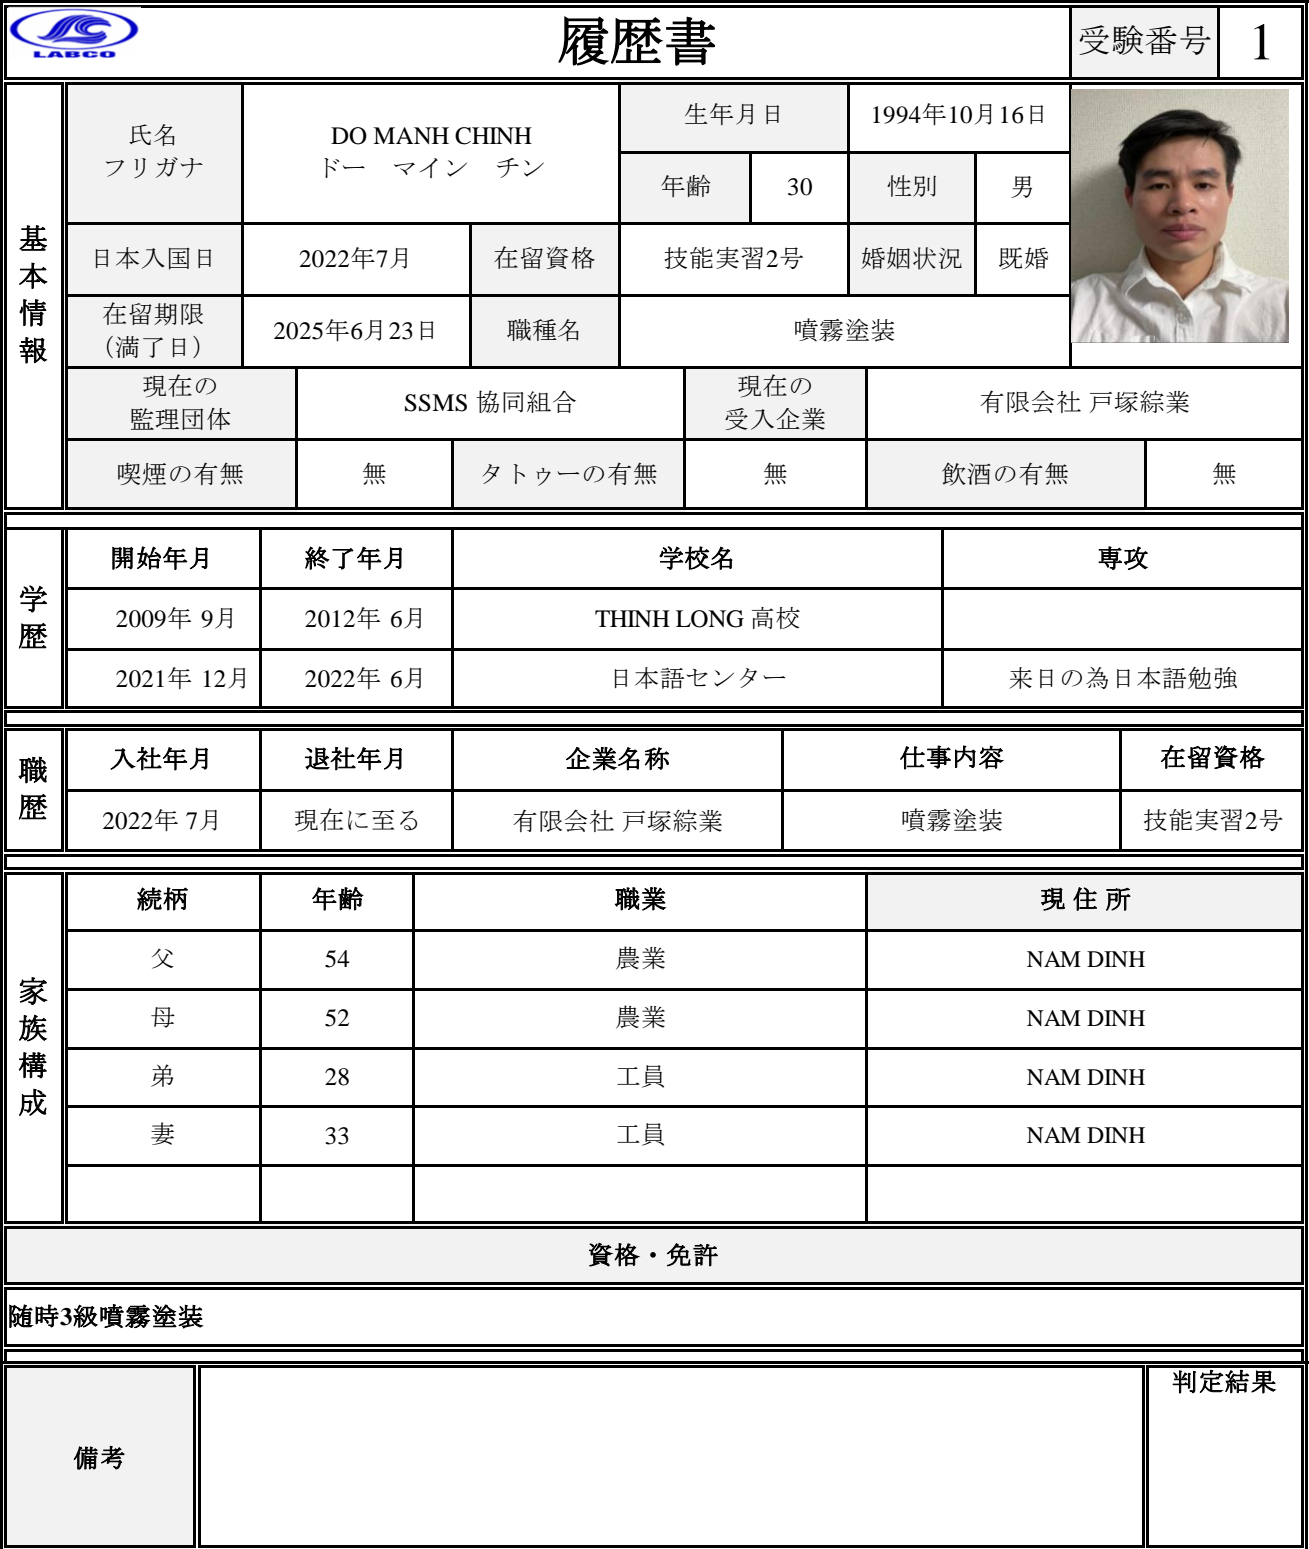 LABCO
履歴書
受験番号 1
基本情報
氏名
フリガナ
DO MANH CHINH
ドー　マイン　チン
生年月日 1994年10月16日
年齢 30 性別 男
日本入国日 2022年7月 在留資格 技能実習2号 婚姻状況 既婚
在留期限
（満了日）
2025年6月23日 職種名 噴霧塗装
現在の
監理団体
SSMS 協同組合
現在の
受入企業
有限会社 戸塚綜業
喫煙の有無 無 タトゥーの有無 無 飲酒の有無 無
学歴
開始年月 終了年月 学校名 専攻
2009年 9月 2012年 6月 THINH LONG 高校
2021年 12月 2022年 6月 日本語センター 来日の為日本語勉強
職歴
入社年月 退社年月 企業名称 仕事内容 在留資格
2022年 7月 現在に至る 有限会社 戸塚綜業 噴霧塗装 技能実習2号
家族構成
続柄 年齢 職業 現 住 所
父 54 農業 NAM DINH
母 52 農業 NAM DINH
弟 28 工員 NAM DINH
妻 33 工員 NAM DINH
資格・免許
随時3級噴霧塗装
備考
判定結果